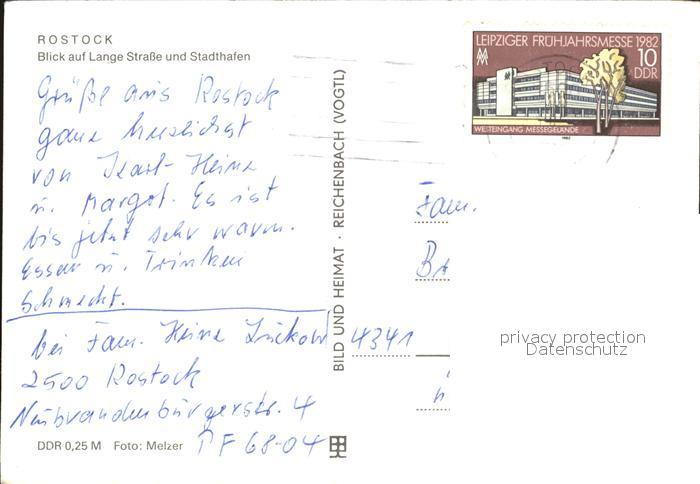 ROSTOCK
Blick auf Lange Straße und Stadthafen
Grüße aus Rostock
ganz herzlichst
von Karl-Heinz
u. Margot. Es ist
bis jetzt sehr warm.
Essen u. Trinken
schmeckt.
bei Fam. Heinz Lückow
2500 Rostock
Neubrandenburgerstr. 4
PF 68-04
DDR 0,25 M Foto: Melzer
BILD UND HEIMAT · REICHENBACH (VOGTL)
LEIPZIGER FRÜHJAHRSMESSE 1982
10
DDR
WESTEINGANG MESSEGELÄNDE
1982
Fam.
4341
privacy protection
Datenschutz